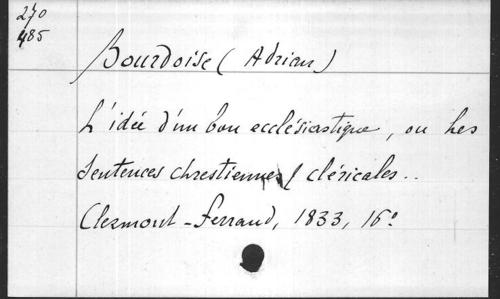 270
485
Bourdoise (Adrian)
L'idée d'un bon ecclésiastique, ou les
Sentences chrestiennes & cléricales..
Clermont-Ferrand, 1833, 16º